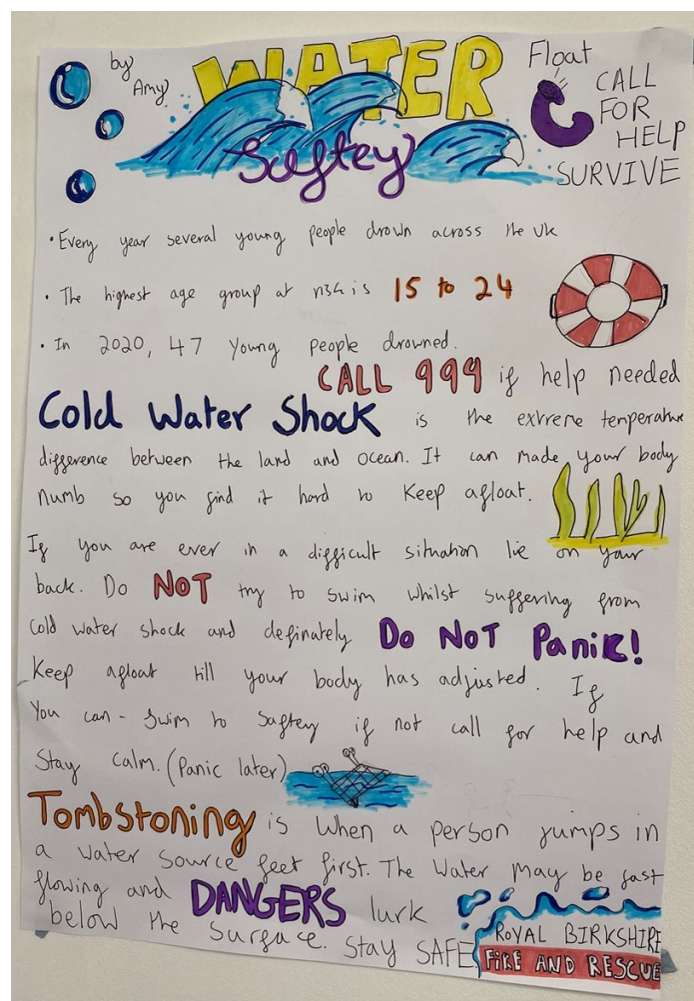 by
Amy
WATER
Saftey
Float
CALL
FOR
HELP
SURVIVE
• Every year several young people drown across the UK
• The highest age group at risk is 15 to 24
• In 2020, 47 Young people drowned.
CALL 999 if help needed
Cold Water Shock is the extreme temperature
difference between the land and ocean. It can made your body
numb so you find it hard to keep afloat.
If you are ever in a difficult situation lie on your
back. Do NOT try to swim whilst suffering from
cold water shock and definately Do NOT Panic!
Keep afloat till your body has adjusted. If
You can - Swim to Saftey if not call for help and
Stay calm. (Panic later)
Tombstoning is when a person jumps in
a water source feet first. The Water may be fast
flowing and DANGERS lurk
below the surface. Stay SAFE
ROYAL BIRKSHIRE
FIRE AND RESCUE